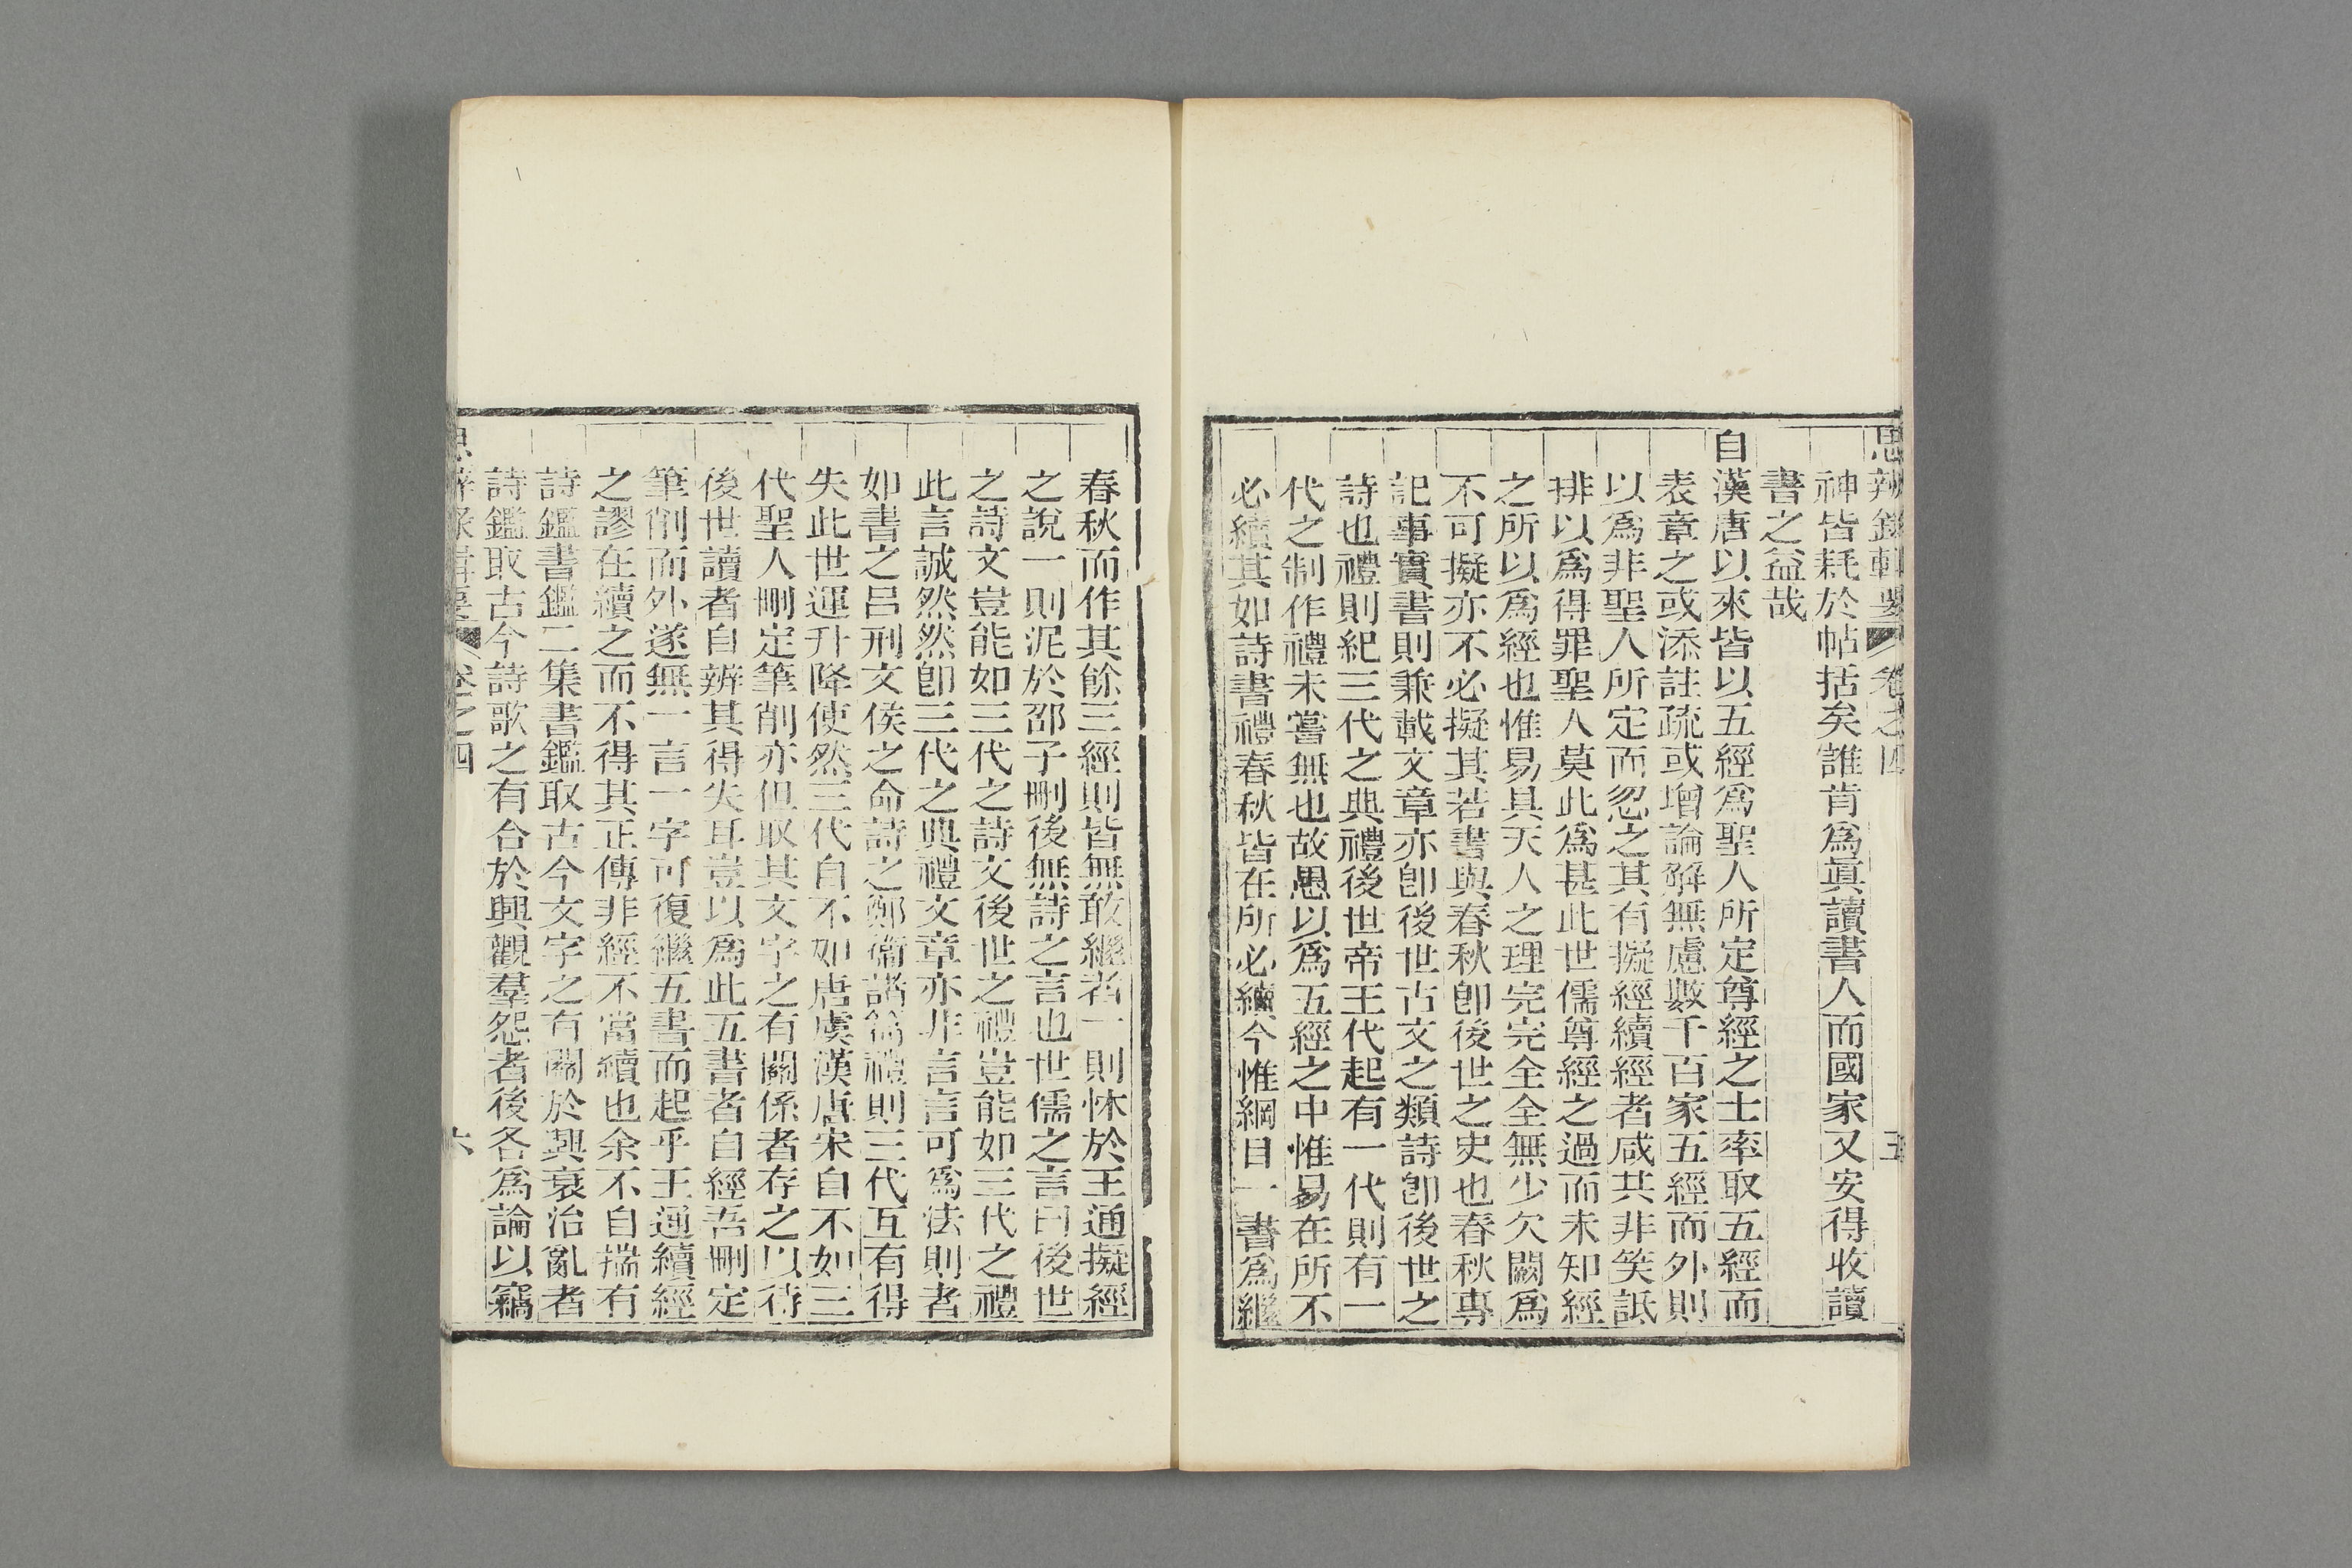 思辨錄輯要 卷之四 五
神皆耗於帖括矣誰肯爲眞讀書人而國家又安得收讀
書之益哉
自漢唐以來皆以五經爲聖人所定尊經之士率取五經而
表章之或添註疏或增論解無慮數千百家五經而外則
以爲非聖人所定而忽之其有擬經續經者咸共非笑詆
排以爲得罪聖人莫此爲甚此世儒尊經之過而未知經
之所以爲經也惟易具天人之理完完全全無少欠闕爲
不可擬亦不必擬其若書與春秋卽後世之史也春秋專
記事實書則兼載文章亦卽後世古文之類詩卽後世之
詩也禮則紀三代之典禮後世帝王代起有一代則有一
代之制作禮未嘗無也故愚以爲五經之中惟易在所不
必續其如詩書禮春秋皆在所必續今惟綱目一書爲繼
春秋而作其餘三經則皆無敢繼者一則怵於王通擬經
之說一則泥於邵子刪後無詩之言也世儒之言曰後世
之詩文豈能如三代之詩文後世之禮豈能如三代之禮
此言誠然然卽三代之典禮文章亦非言言可爲法則者
如書之呂刑文侯之命詩之鄭衞諸篇禮則三代互有得
失此世運升降使然三代自不如唐虞漢唐宋自不如三
代聖人刪定筆削亦但取其文字之有關係者存之以待
後世讀者自辨其得失耳豈以爲此五書者自經吾刪定
筆削而外遂無一言一字可復繼五書而起乎王通續經
之謬在續之而不得其正傳非經不當續也余不自揣有
詩鑑書鑑二集書鑑取古今文字之有關於興衰治亂者
詩鑑取古今詩歌之有合於興觀羣怨者後各爲論以竊
思辨錄輯要 卷之四 六